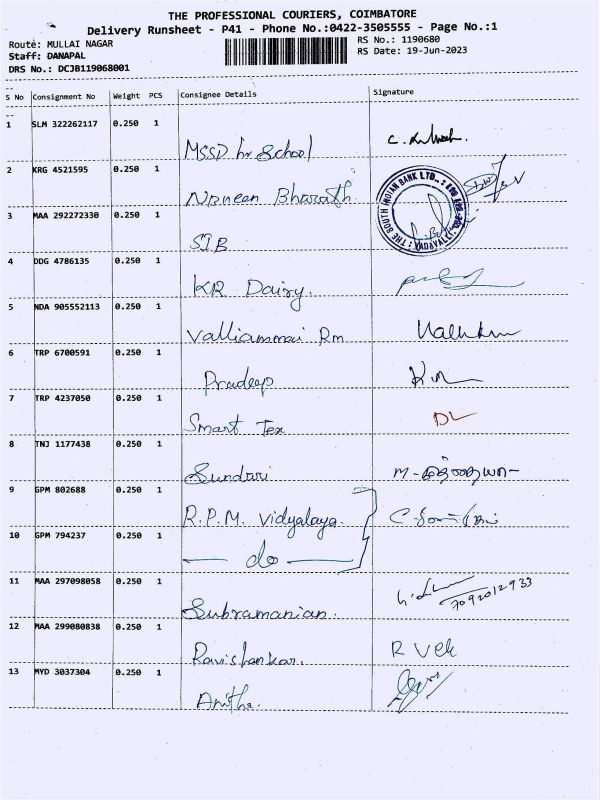 THE PROFESSIONAL COURIERS, COIMBATORE
Delivery Runsheet - P41 - Phone No.:0422-3505555 - Page No.:1
Route: MULLAI NAGAR
RS No.: 1190680
Staff: DANAPAL
RS Date: 19-Jun-2023
DRS No.: DCJB119068001
S No Consignment No Weight PCS Consignee Details Signature
1 SLM 322262117 0.250 1
MSSD hr School
2 KRG 4521595 0.250 1
Naneen Bharath
THE SOUTH INDIAN BANK LTD.,
VADAVALLI
3 MAA 292272330 0.250 1
SIB
4 DDG 4786135 0.250 1
KR Dairy.
5 NDA 905552113 0.250 1
Valliammai Rm
6 TRP 6700591 0.250 1
Pradeep
7 TRP 4237050 0.250 1
Smart Tex
DL
8 TNJ 1177438 0.250 1
Sundari
9 GPM 802688 0.250 1
R.P.M. Vidyalaya.
10 GPM 794237 0.250 1
— do —
11 MAA 297098058 0.250 1
Subramanian.
7092012933
12 MAA 299080838 0.250 1
Ravishankar.
13 MYD 3037304 0.250 1
Anitha.